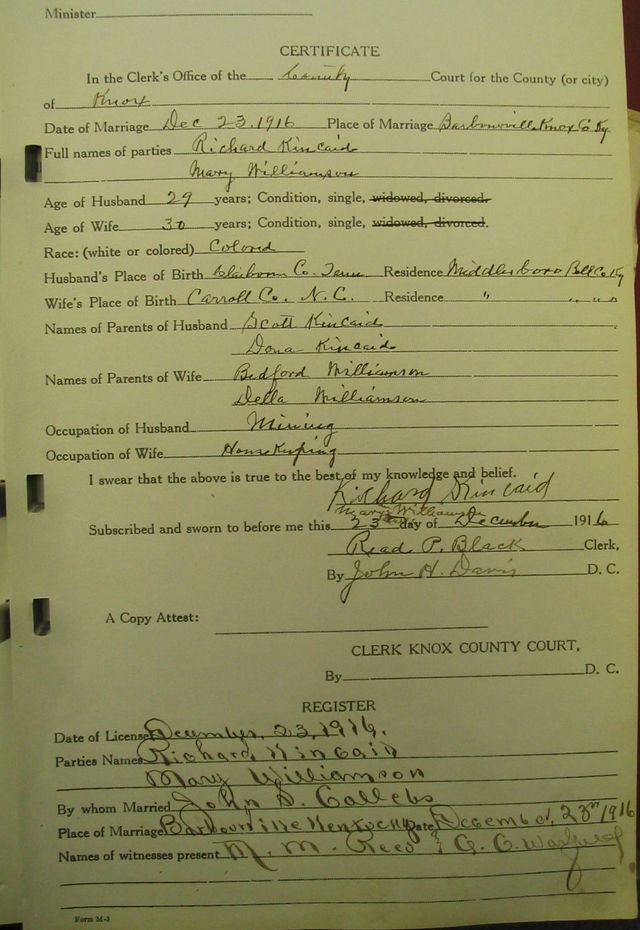 Minister
CERTIFICATE
In the Clerk's Office of the County Court for the County (or city)
of Knox
Date of Marriage Dec 23, 1916 Place of Marriage Barbourville Knox Co Ky
Full names of parties Richard Kincaid
Mary Williamson
Age of Husband 29 years; Condition, single, widowed, divorced.
Age of Wife 30 years; Condition, single, widowed, divorced.
Race: (white or colored) Colored
Husband's Place of Birth Claiborn Co. Tenn Residence Middlesboro Bell Co Ky
Wife's Place of Birth Carroll Co. N.C. Residence " " " "
Names of Parents of Husband Scott Kincaid
Dona Kincaid
Names of Parents of Wife Bedford Williamson
Della Williamson
Occupation of Husband Mining
Occupation of Wife House Keeping
I swear that the above is true to the best of my knowledge and belief.
Richard Kincaid
Mary Williamson
Subscribed and sworn to before me this 23 day of December 1916
Read P. Black Clerk,
By John H. Davis D. C.
A Copy Attest:
CLERK KNOX COUNTY COURT,
By D. C.
REGISTER
Date of License December, 23, 1916.
Parties Names Richard Kincaid
Mary Williamson
By whom Married John S. Callebs
Place of Marriage Barbourville Kentucky Date December, 23rd 1916
Names of witnesses present M. M. Reed & G. C.
Form M-3